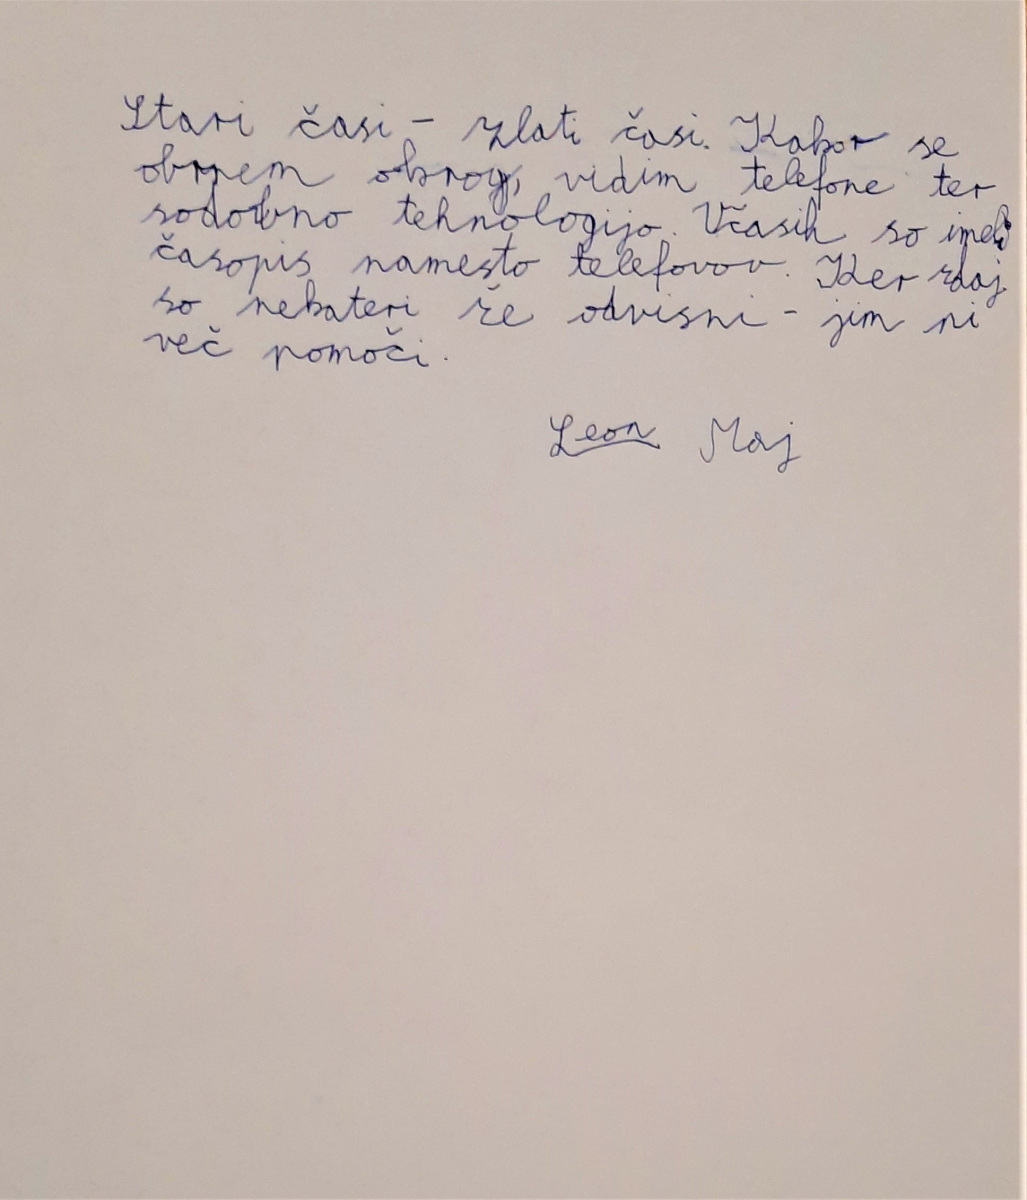 Stari časi - zlati časi. Kakor se
obrnem okrog, vidim telefone ter
sodobno tehnologijo. Včasih so imeli
časopis namesto telefovov. Ker zdaj
so nekateri že odvisni - jim ni
več pomoči.
Leon Maj